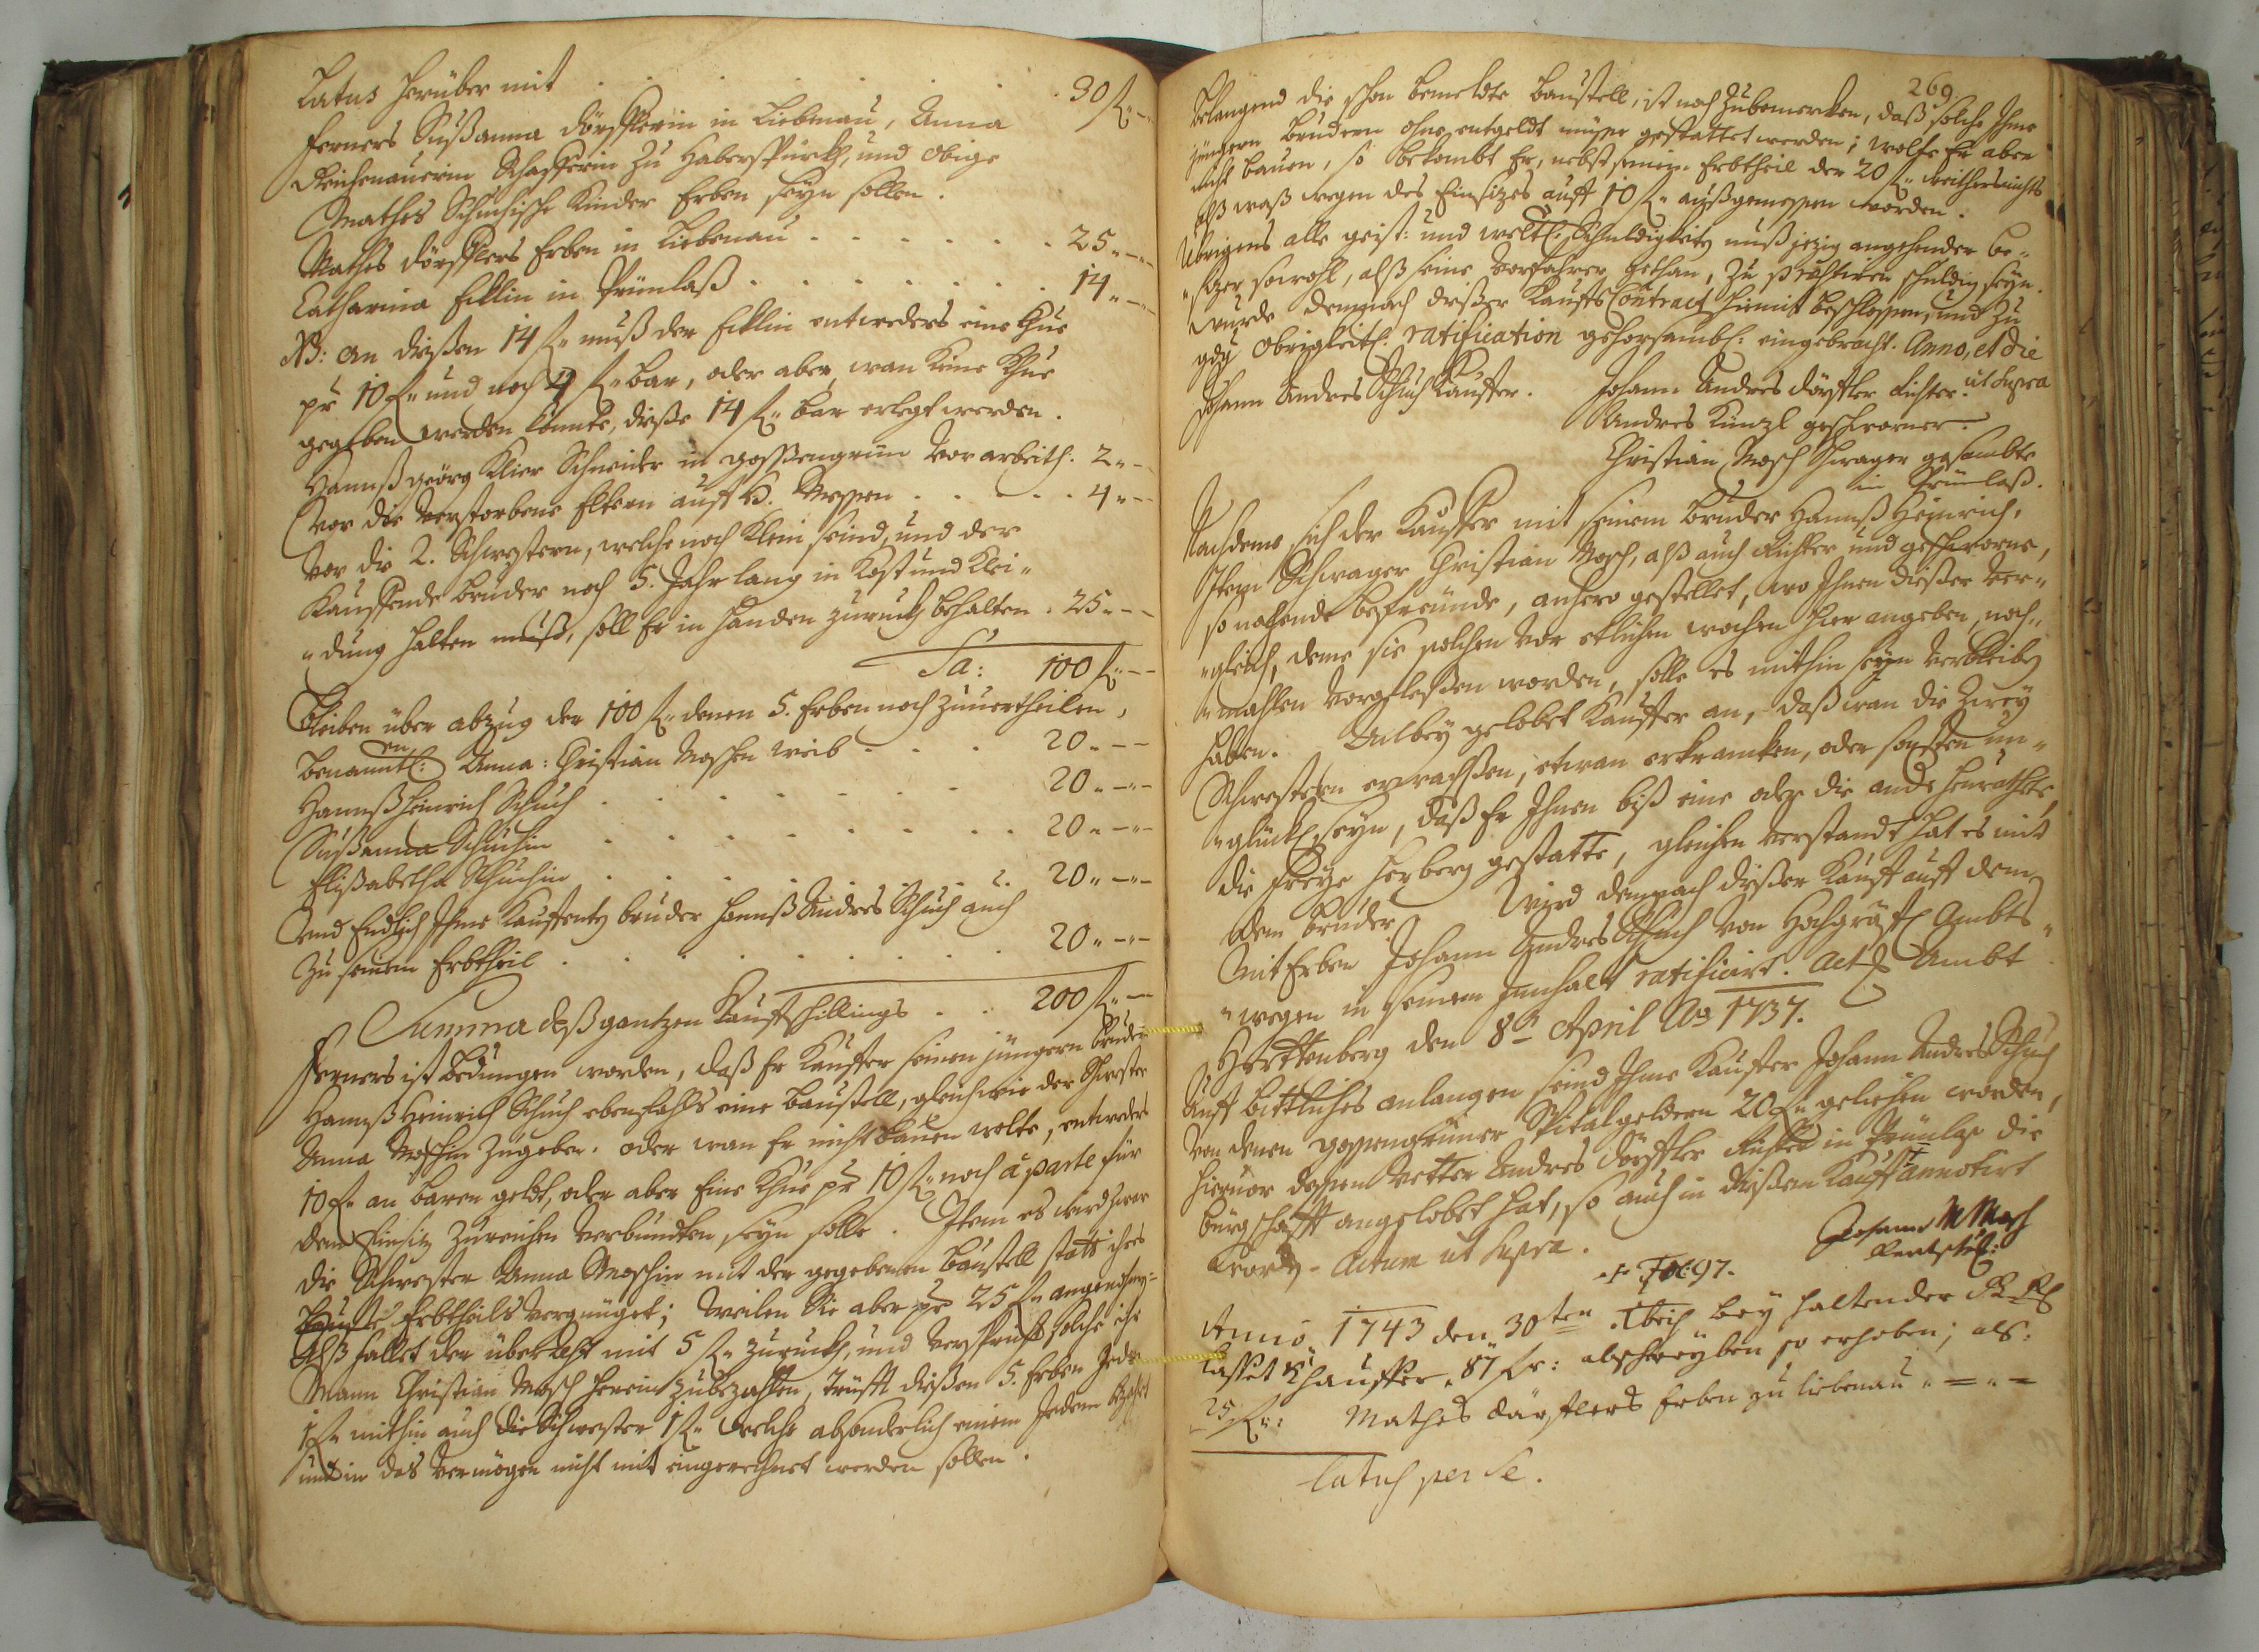 Latus herüber mit . . . . 30 f" —
ferners Sußanna Dörfflerin in Liebenau, Anna
Reichenauerin Schafferin zu Haberspürckh, und obige
Mathes Schuhische Kinder Erben seyn sollen.
Mathes Dörfflers Erben in Liebenau . . . . . . 25 " —
Catharina Ecklin in Prünlaß . . . . . . . 14 " —
NB: an dießen 14 f" muß der Ecklin entweders eine Khue
pr 10 f" und noch 4 f" bar, oder aber, wan keine Khue
gegeben werden könnte, dieße 14 f" bar erlegt werden.
Hannß Geörg Klier Schneider in Gossengrün vor arbeith. 2 " —
Vor die verstorbene Eltern auff H. Messen . . . . . 4 " —
Vor die 2. Schwestern, welche noch klein seind, und der
Kauffende bruder noch 5. Jahr lang in Kost und Klei-
"dung halten muß, soll Er in handen zuruckh behalten . 25 " —
Sa: 100 f" —
Bleiben über abzug der 100 f" denen 5. Erben noch zuuertheilen,
benanntl: Anna: Christian Moschen weib . . . 20 " —
Hannß Heinrich Schuch . . . . . . . 20 " —
Sußanna Schuchin . . . . . . . 20 " —
Elisabetha Schuchin . . . . . . . 20 " —
Und Endlich Ihme Kauffenden bruder Hannß Andres Schuch auch
zu seinem Erbtheil . . . . . . . . 20 " —
Summa deß gantzen Kauffschillings . . 200 f" —
Ferners ist bedungen worden, daß Er Kauffer seinen jüngern bruder
Hannß Heinrich Schuch ebenfahls eine baustell, gleichwie der Schwester
Anna Moschin zugeben. oder wan Er nicht bauen wolte, entweders
10 f" an baren geldt, oder aber Eine Khue pr 10 f" noch à parte für
dem Einsitz zureichen verbundten seyn solle. Item es wird zwar
die Schwester Anna Moschin mit der gegebenen baustell statt ihres
Erbtheils vergnüget; weilen Sie aber pr 25 f" angenohmen
Alß fallet der überrest mit 5 f" zuruckh, und verspricht solche ihr
Mann Christian Mosch herein zubezahlen, trifft dießen 5. Erben jeder
1 f" mithin auch die Schwester 1 f" welche absonderlich einem Jedem bezahlt
und in das vermögen nicht mit eingerechnet werden sollen.
269
Belangend die schon bemeldte baustell, ist noch zubemercken, daß solche Ihme
jüngern brudern ohne entgeldt müsse gestattet werden; wolte Er aber
nicht bauen, so bekombt Er, nebst seinen Erbtheil der 20 f" weithers nichts
alß waß wegen des Einsitzes auff 10 f" außgemessen worden.
Übrigens alle geist: und weltl: Schuldigkeiten muß jezig angehender be-
"sitzer sowohl, alß seine Vorfahrer gethan, zu praestiren schuldig seyn.
Wurde demnach dießer Kauffs Contract hiemit beschlossen, und zu
gdg Obrigkeitl: ratification gehorsambl: eingebracht. Anno, et die
ut supra
Johann Andres Schuch Kauffer. Johann Andres Dörffler Richter.
Andres Künzl geschworner.
Christian Mosch Schwager gesambte
in Prünlaß.
Nachdeme sich der Kauffer mit seinem bruder Hannß Heinrich,
Item Schwager Christian Mosch, alß auch Richter, und geschworne,
so nahende befreunde, anhero gestellet, wo Ihnen dießer ver-
"gleich, deme sie solchen vor etlichen wochen hier angeben, noch-
"mahlen vorgelesen worden, solle es mithin seyn verbleiben
haben. Anbey gelobet Kauffer an, daß wan die Zwey
Schwestern erwachsen, etwan erkrancken, oder sonsten un-
"glückl: seyn, daß Er Ihnen biß eine oder die ande heurathete
die freye herberg gestatte, gleichen verstandt hat es mit
dem bruder. Wird demnach dießer Kauff auff dem
Mit Erben Johann Andres Schuch von Hochgräfl: Ambts-
"wegen in seinem Innhalt ratificirt. Act: Ambt
Harttenberg den 8t April Ao 1737.
Auff bittliches anlangen seind Ihme Kauffer Johann Andres Schuch
von denen gossengrüner Spitalgeldern 20 f" geliehen worden,
hieruor dessen Vetter Andres Dörffler Richter in Prünlaß die
bürgschafft angelobet hat, so auch in dießem Kauff annotirt
worden. Actum ut supra. Johann M Mosch
+ Fol: 97.
Anno 1743 den 30ten Xbris bey haltender
lasset Khauffer 87 fr: abschreyben so erhoben; als:
25 f": Mathes Dörflers Erben zu liebenau " = " =
Latus per se.